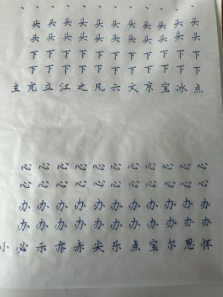 、、、、、、、、、、、
头头头头头头头头头头头
头头头头头头头头头头头
下下下下下下下下下下下
下下下下下下下下下下下
主 亢 立 江 之 凡 六 文 京 宝 冰 点
心心心心心心心心心心心
心心心心心心心心心心心
办办办办办办办办办办办
办办办办办办办办办办办
小 必 示 亦 赤 尖 乐 点 宝 尔 恩 怀